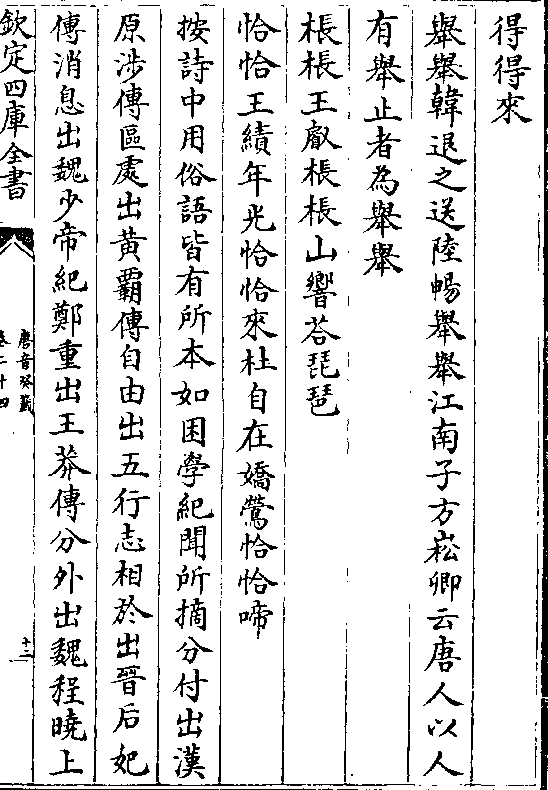 得得來
舉舉韓退之送陸暢舉舉江南子方崧卿云唐人以人
有舉止者為舉舉
棖棖王叡棖棖山響荅琵琶
恰恰王績年光恰恰來杜自在嬌鶯恰恰啼
按詩中用俗語皆有所本如困學紀聞所摘分付出漢
原渉傳區處出黃霸傳自由出五行志相於出晉后妃
傳消息出魏少帝紀鄭重出王莽傳分外出魏程曉上
欽定四庫全書
唐音癸籤
卷二十四
十二